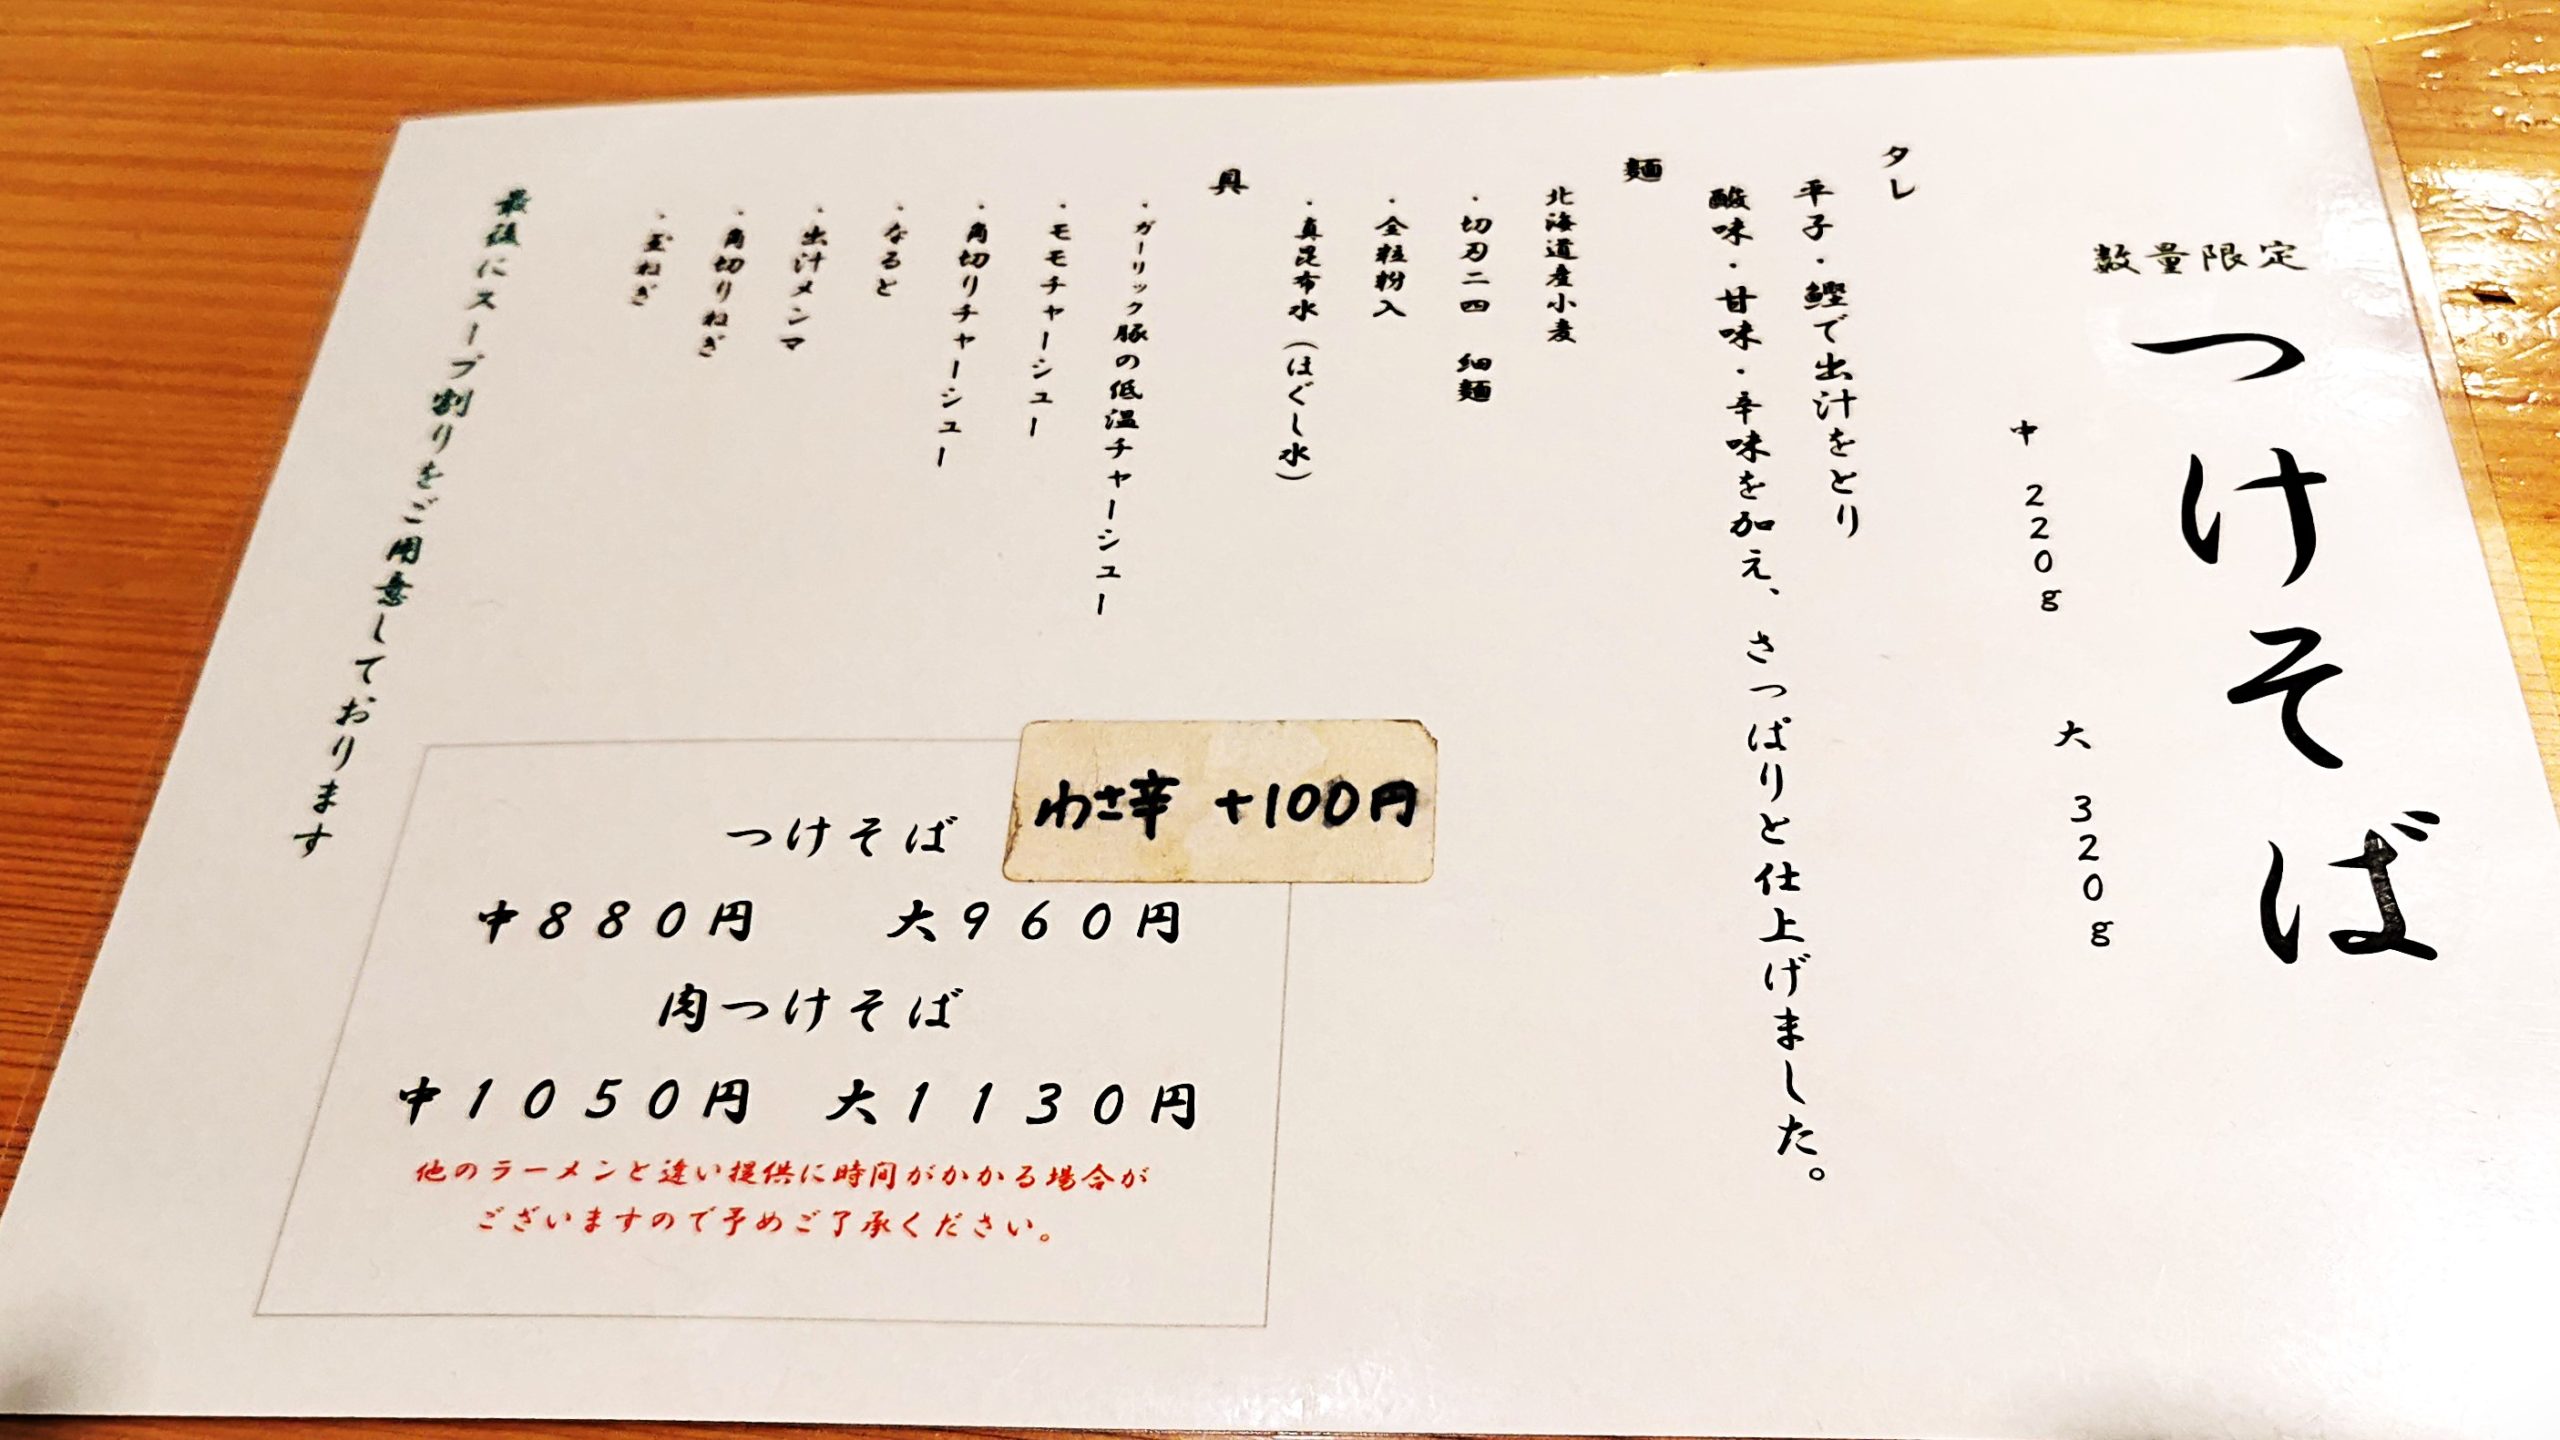 数量限定
つけそば
中 220g 大 320g
タレ
平子・鰹で出汁をとり
酸味・甘味・辛味を加え、さっぱりと仕上げました。
麺
北海道産小麦
・切刃二四 細麺
・全粒粉入
・真昆布水（ほぐし水）
具
・ガーリック豚の低温チャーシュー
・モモチャーシュー
・角切りチャーシュー
・なると
・出汁メンマ
・角切りねぎ
・玉ねぎ
最後にスープ割りをご用意しております
わさ辛 +100円
つけそば
中880円 大960円
肉つけそば
中1050円 大1130円
他のラーメンと違い提供に時間がかかる場合が
ございますので予めご了承ください。